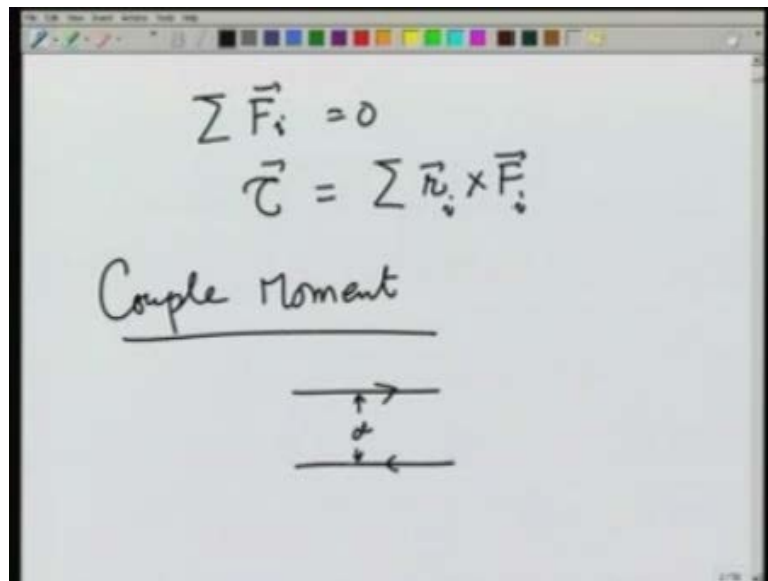 ∑ F⃗ᵢ = 0
τ⃗ = ∑ r⃗ᵢ × F⃗ᵢ
Couple Moment
d